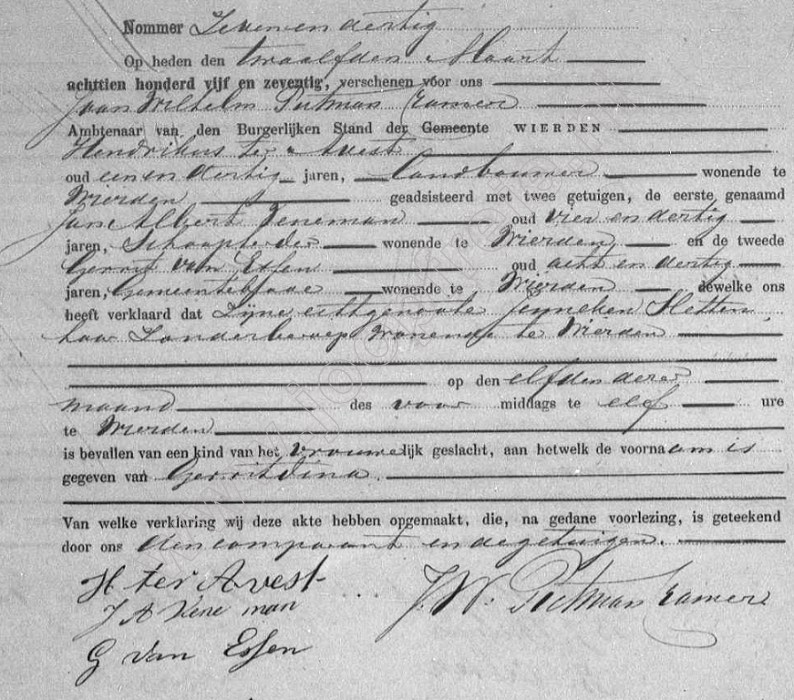 Nommer Zevenen dertig
Op heden den twaalfden Maart
achttien honderd vijf en zeventig, verschenen vóór ons
Joan Wilhelm Putman Cramer
Ambtenaar van den Burgerlijken Stand der Gemeente WIERDEN
Hendrikus ter Avest
oud eenen dertig jaren, Landbouwer wonende te
Wierden geadsisteerd met twee getuigen, de eerste genaamd
Jan Albert Veneman oud vier en dertig
jaren, wonende te Wierden en de tweede
Gerrit van Essen oud acht en dertig
jaren, Gemeentebode wonende te Wierden dewelke ons
heeft verklaard dat Zijne echtgenoote Jenneken
Zonder beroep wonende te Wierden
op den elfden dezer
maand des voor middags te elf ure
te Wierden
is bevallen van een kind van het vrouwelijk geslacht, aan hetwelk de voornaam is
gegeven van Gerritdina.
Van welke verklaring wij deze akte hebben opgemaakt, die, na gedane voorlezing, is geteekend
door ons den comparant en de getuigen.
H ter Avest
J A Vene man
G van Essen
J. W. Putman Cramer